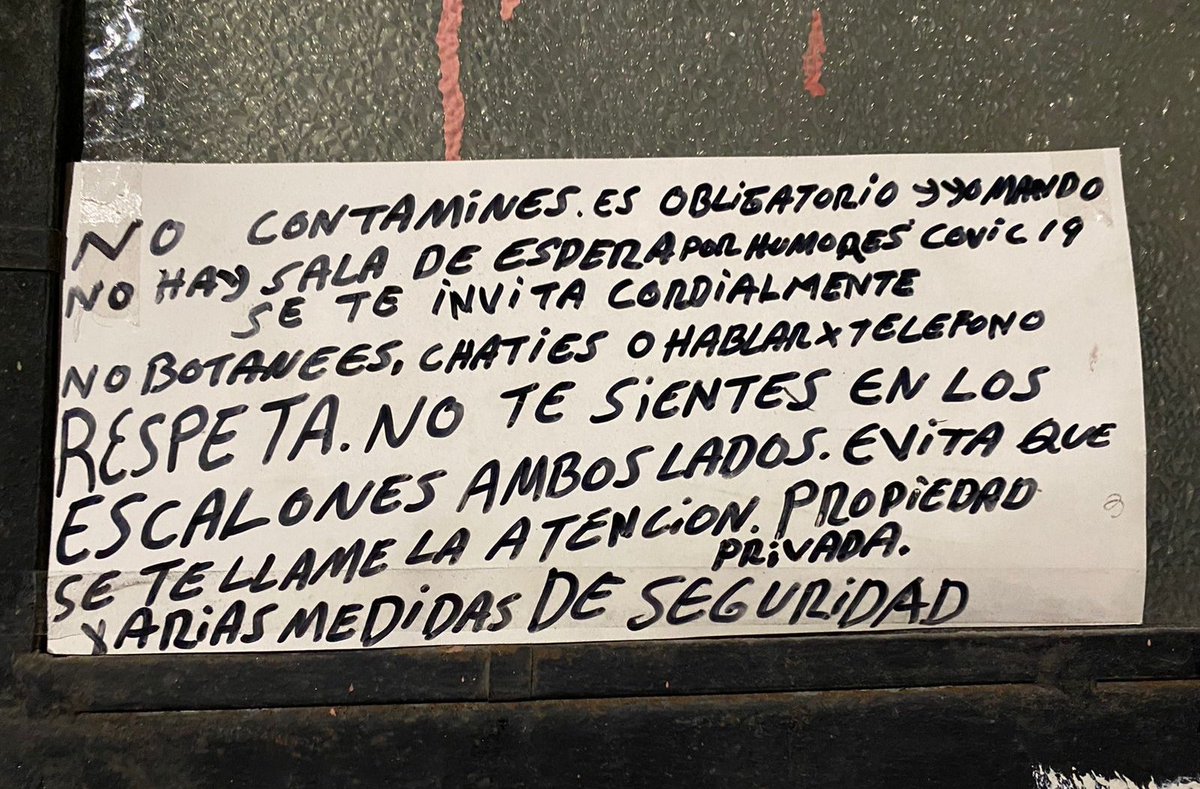 NO CONTAMINES. ES OBLIGATORIO y yO MANDO
NO HAY SALA DE ESPERA POR HUMORES COVIC 19
SE TE INVITA CORDIALMENTE
NO BOTANEES, CHATIES O HABLAR X TELEFONO
RESPETA. NO TE SIENTES EN LOS
ESCALONES AMBOS LADOS. EVITA QUE
SE TE LLAME LA ATENCION. PROPIEDAD
PRIVADA.
VARIAS MEDIDAS DE SEGURIDAD